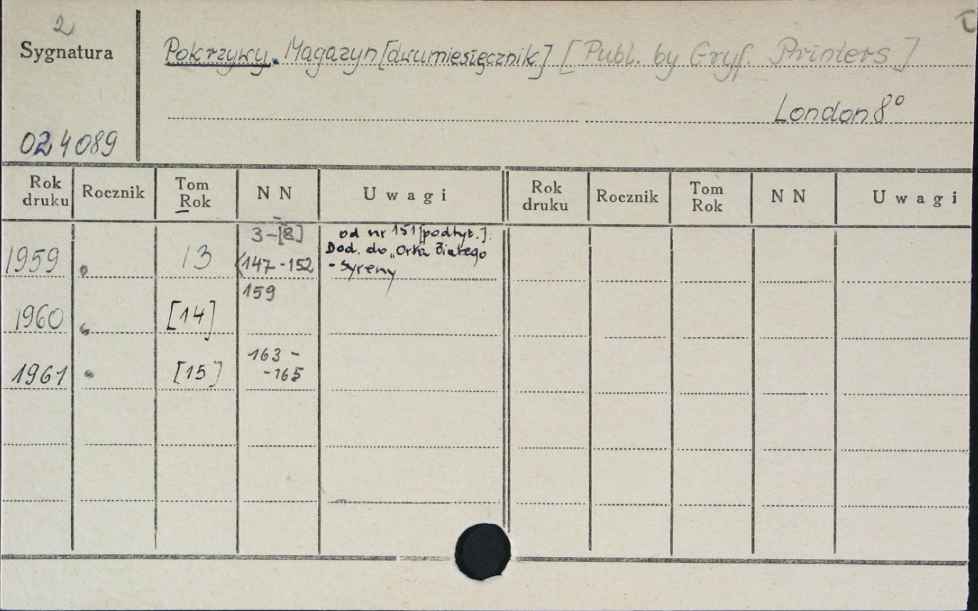 2
Sygnatura
Pokrzywy. Magazyn [dwumiesięcznik] [Publ. by Gryf. Printers]
London 8°
024089
Rok druku Rocznik Tom Rok N N Uwagi Rok druku Rocznik Tom Rok N N Uwagi
1959 13 3-[8] (147-152 od nr 151 [podtyt.]. Dod. do „Orła Białego - Syreny
159
1960 [14]
1961 [15] 163 - -165